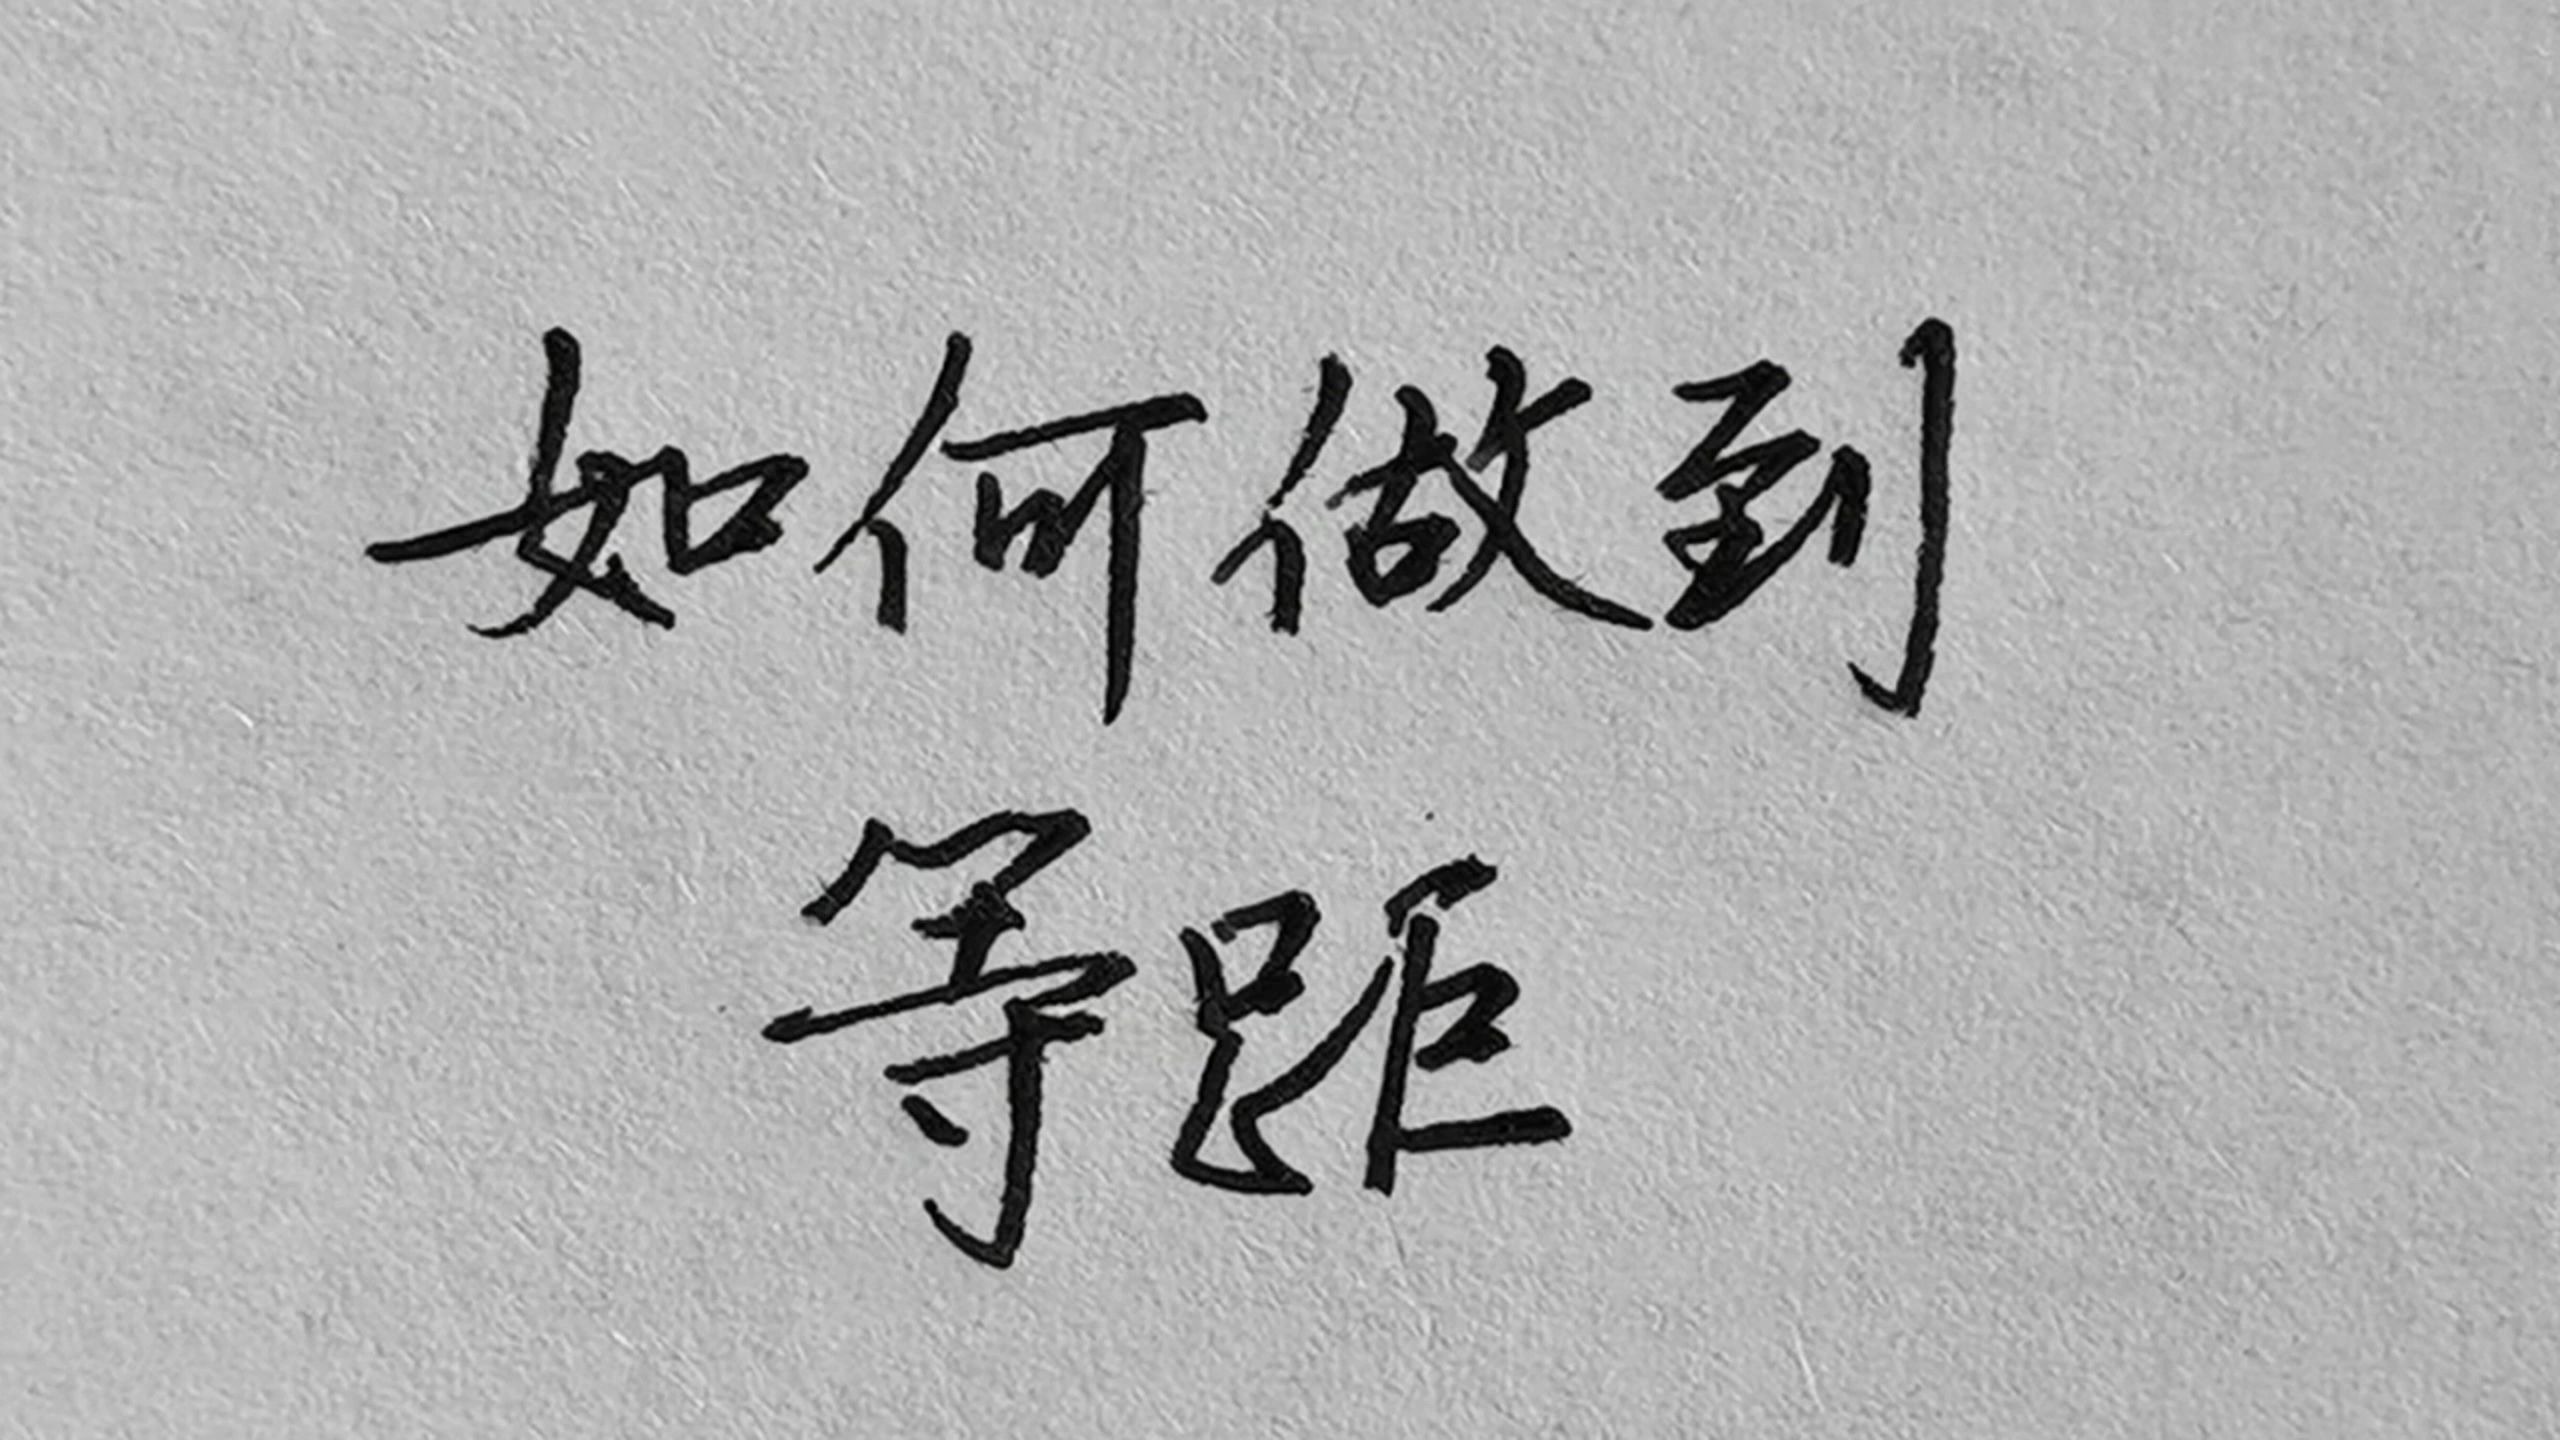 如何做到
等距